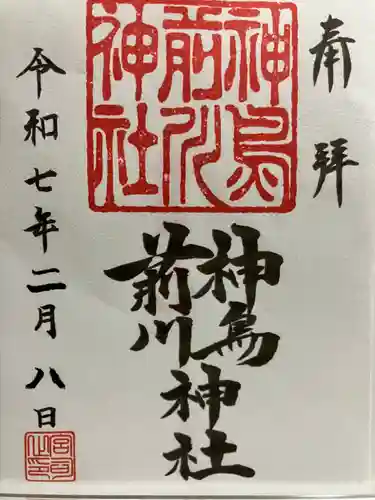 奉拝
神鳥
前川
神社
神鳥
前川
神社
令和七年二月八日